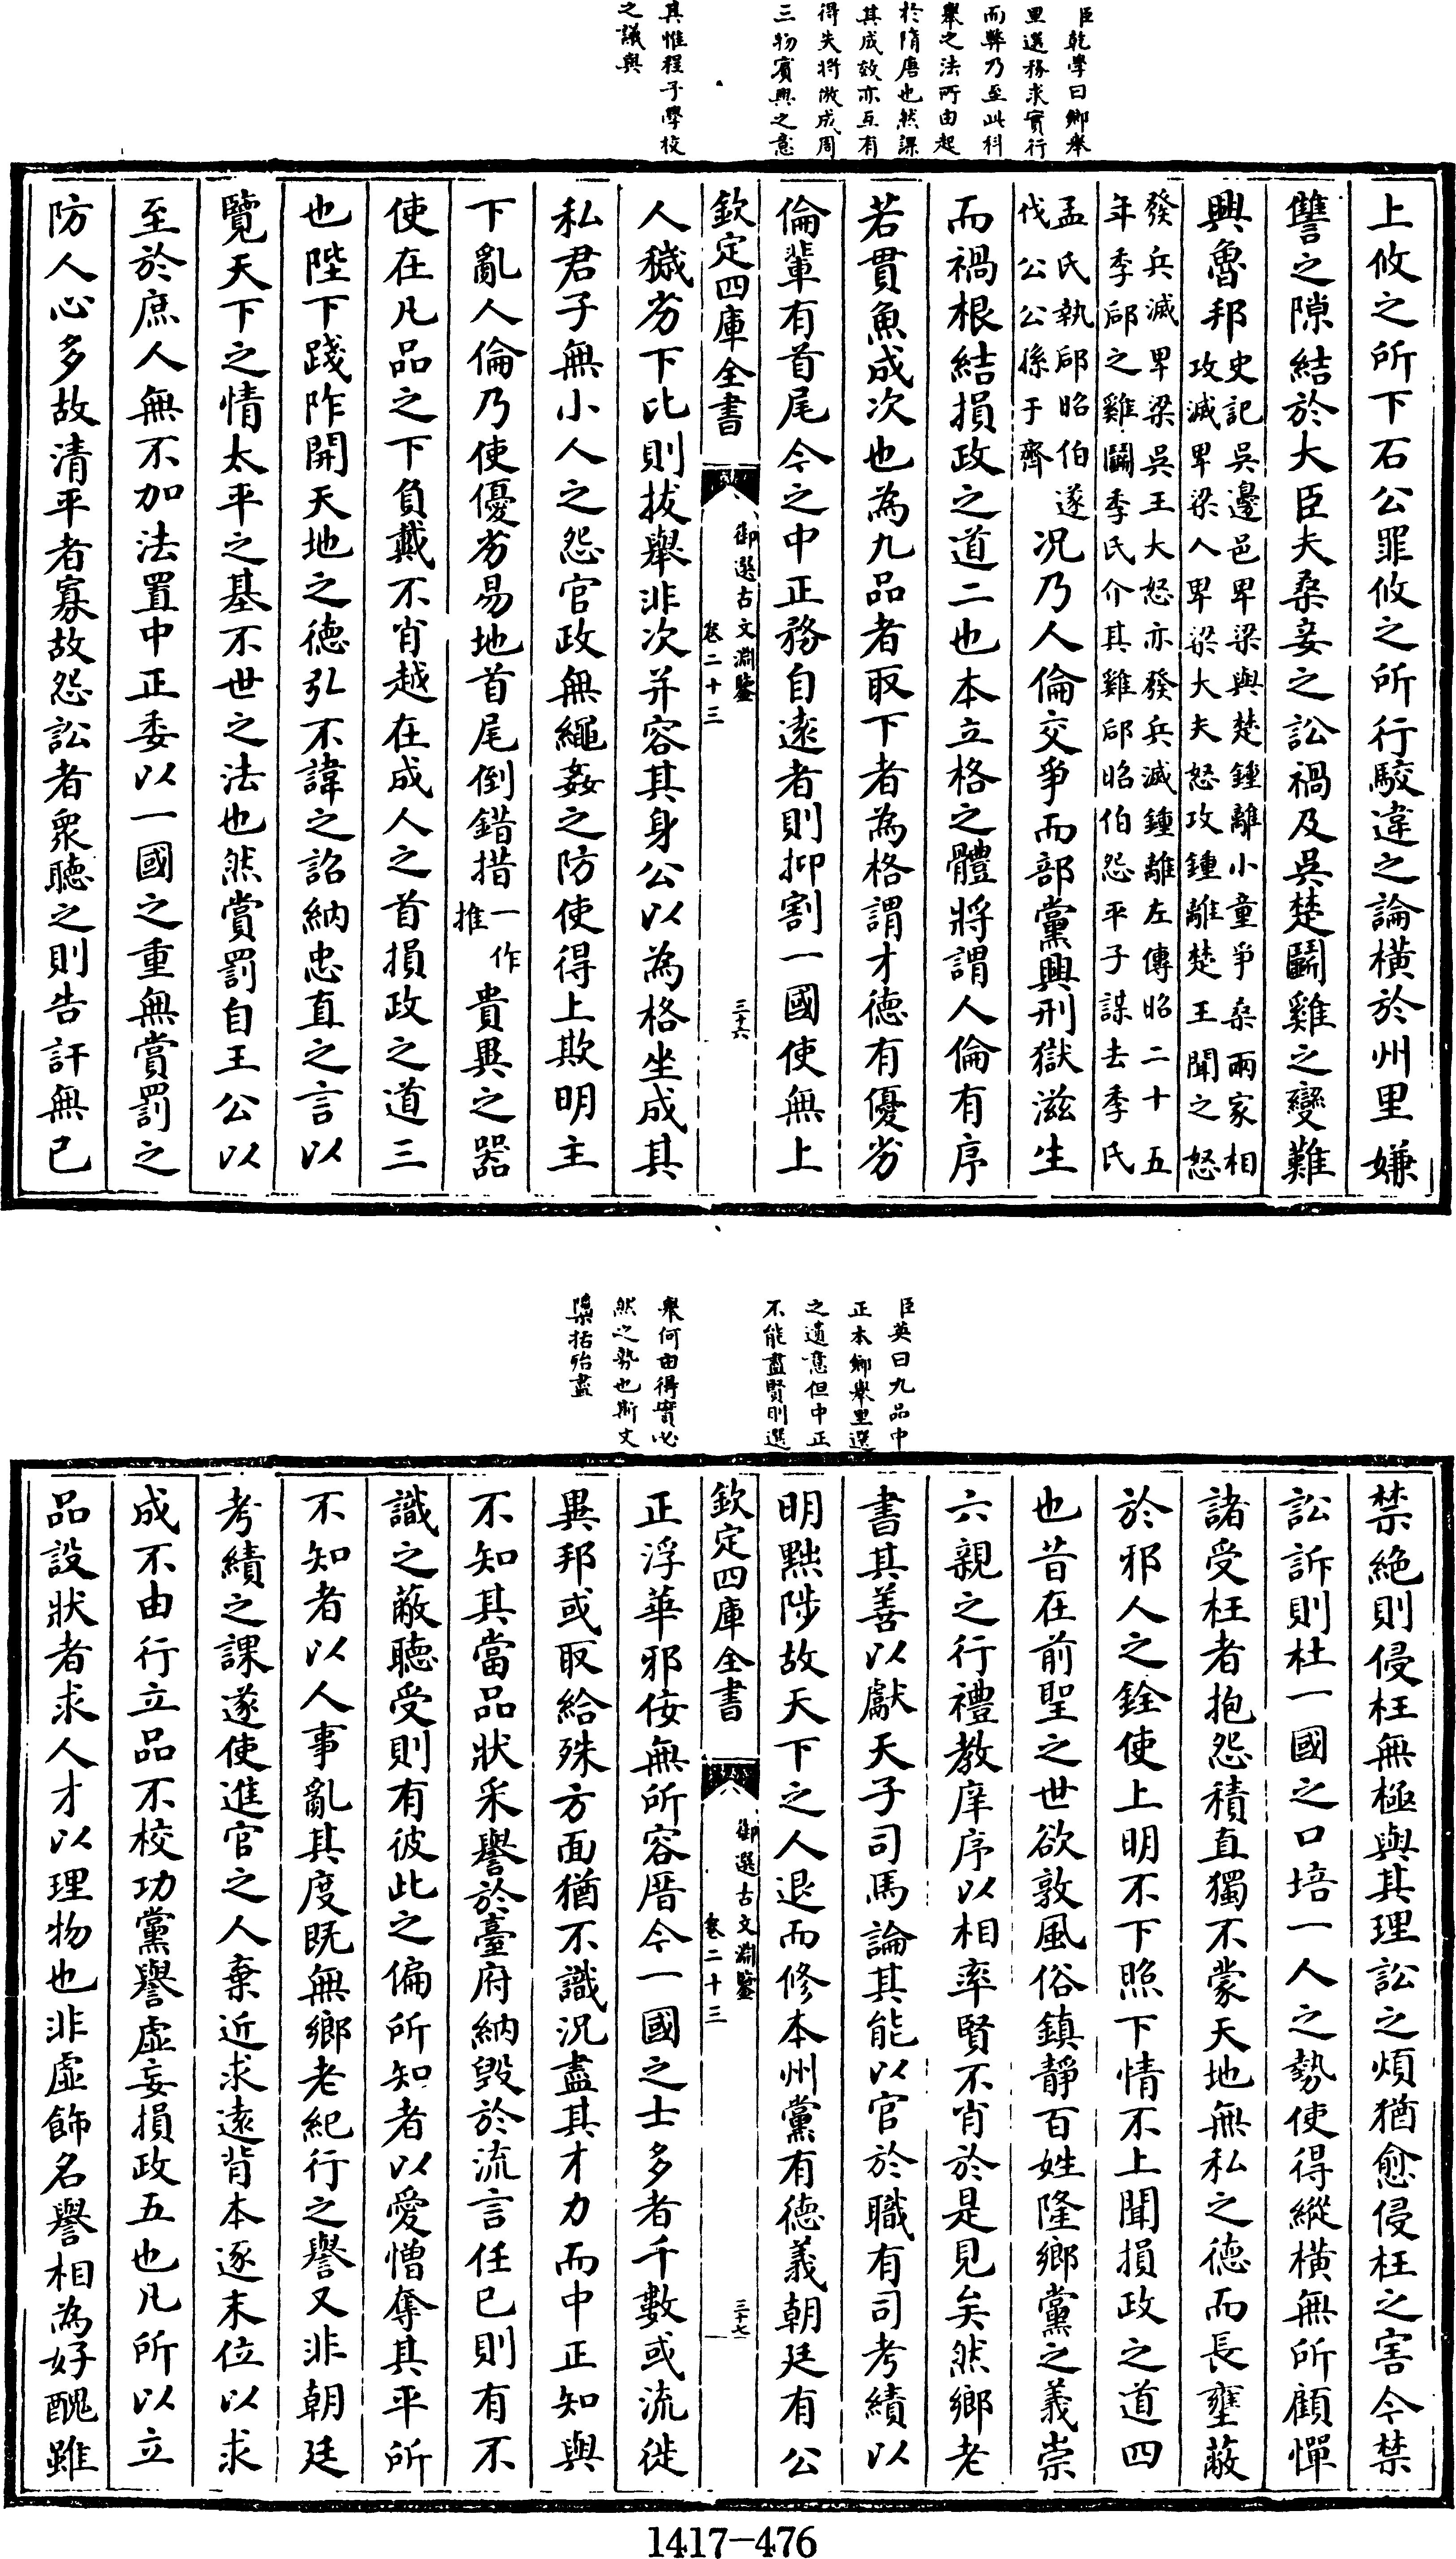 臣乾學曰鄉舉
里選務求實行
而弊乃至此科
舉之法所由起
於隋唐也然課
其成效亦互有
得失將倣成周
三物賓興之意
其惟程子學校
之議與
上攸之所下石公罪攸之所行駮違之論橫於州里嫌
讐之隙結於大臣夫桑妾之訟禍及吳楚鬭雞之變難
興魯邦史記吳邊邑卑梁與楚鍾離小童爭桑兩家相
攻滅卑梁人卑梁大夫怒攻鍾離楚王聞之怒
發兵滅卑梁吳王大怒亦發兵滅鍾離左傳昭二十五
年季郈之雞鬭季氏介其雞郈昭伯怨平子謀去季氏
孟氏執郈昭伯遂
伐公公孫于齊況乃人倫交爭而部黨興刑獄滋生
而禍根結損政之道二也本立格之體將謂人倫有序
若貫魚成次也為九品者取下者為格謂才德有優劣
倫輩有首尾今之中正務自遠者則抑割一國使無上
欽定四庫全書
御選古文淵鑒
卷二十三
三十六
人穢劣下比則拔舉非次并容其身公以為格坐成其
私君子無小人之怨官政無繩姦之防使得上欺明主
下亂人倫乃使優劣易地首尾倒錯措一作
推貴異之器
使在凡品之下負戴不肖越在成人之首損政之道三
也陛下踐阼開天地之德弘不諱之詔納忠直之言以
覽天下之情太平之基不世之法也然賞罰自王公以
至於庶人無不加法置中正委以一國之重無賞罰之
防人心多故清平者寡故怨訟者衆聽之則告訐無已
臣英曰九品中
正本鄉舉里選
之遺意但中正
不能盡賢則選
舉何由得實必
然之勢也斯文
檃括殆盡
禁絶則侵枉無極與其理訟之煩猶愈侵枉之害今禁
訟訴則杜一國之口培一人之勢使得縱橫無所顧憚
諸受枉者抱怨積直獨不蒙天地無私之德而長壅蔽
於邪人之銓使上明不下照下情不上聞損政之道四
也昔在前聖之世欲敦風俗鎮靜百姓隆鄉黨之義崇
六親之行禮教庠序以相率賢不肖於是見矣然鄉老
書其善以獻天子司馬論其能以官於職有司考績以
明黜陟故天下之人退而修本州黨有德義朝廷有公
欽定四庫全書
御選古文淵鑒
卷二十三
三十七
正浮華邪佞無所容厝今一國之士多者千數或流徙
異邦或取給殊方面猶不識況盡其才力而中正知與
不知其當品狀采譽於臺府納毀於流言任已則有不
識之蔽聽受則有彼此之偏所知者以愛憎奪其平所
不知者以人事亂其度既無鄉老紀行之譽又非朝廷
考績之課遂使進官之人棄近求遠背本逐末位以求
成不由行立品不校功黨譽虛妄損政五也凡所以立
品設狀者求人才以理物也非虛飾名譽相為好醜雖
1417-476